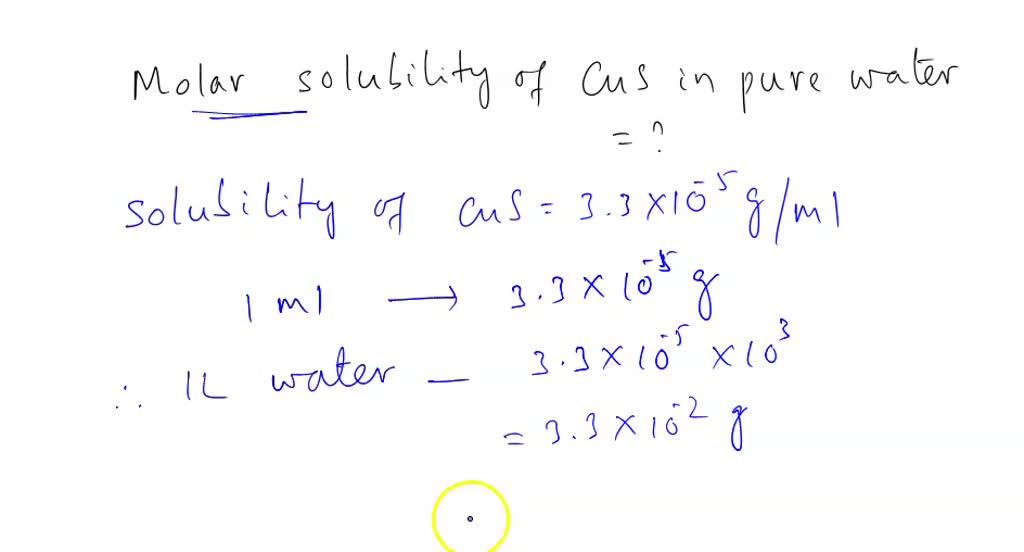 Molar solubility of CuS in pure water
= ?
solubility of CuS = 3.3 × 10⁻⁵ g/ml
1 ml → 3.3 × 10⁻⁵ g
∴ 1L water — 3.3 × 10⁻⁵ × 10³
= 3.3 × 10⁻² g